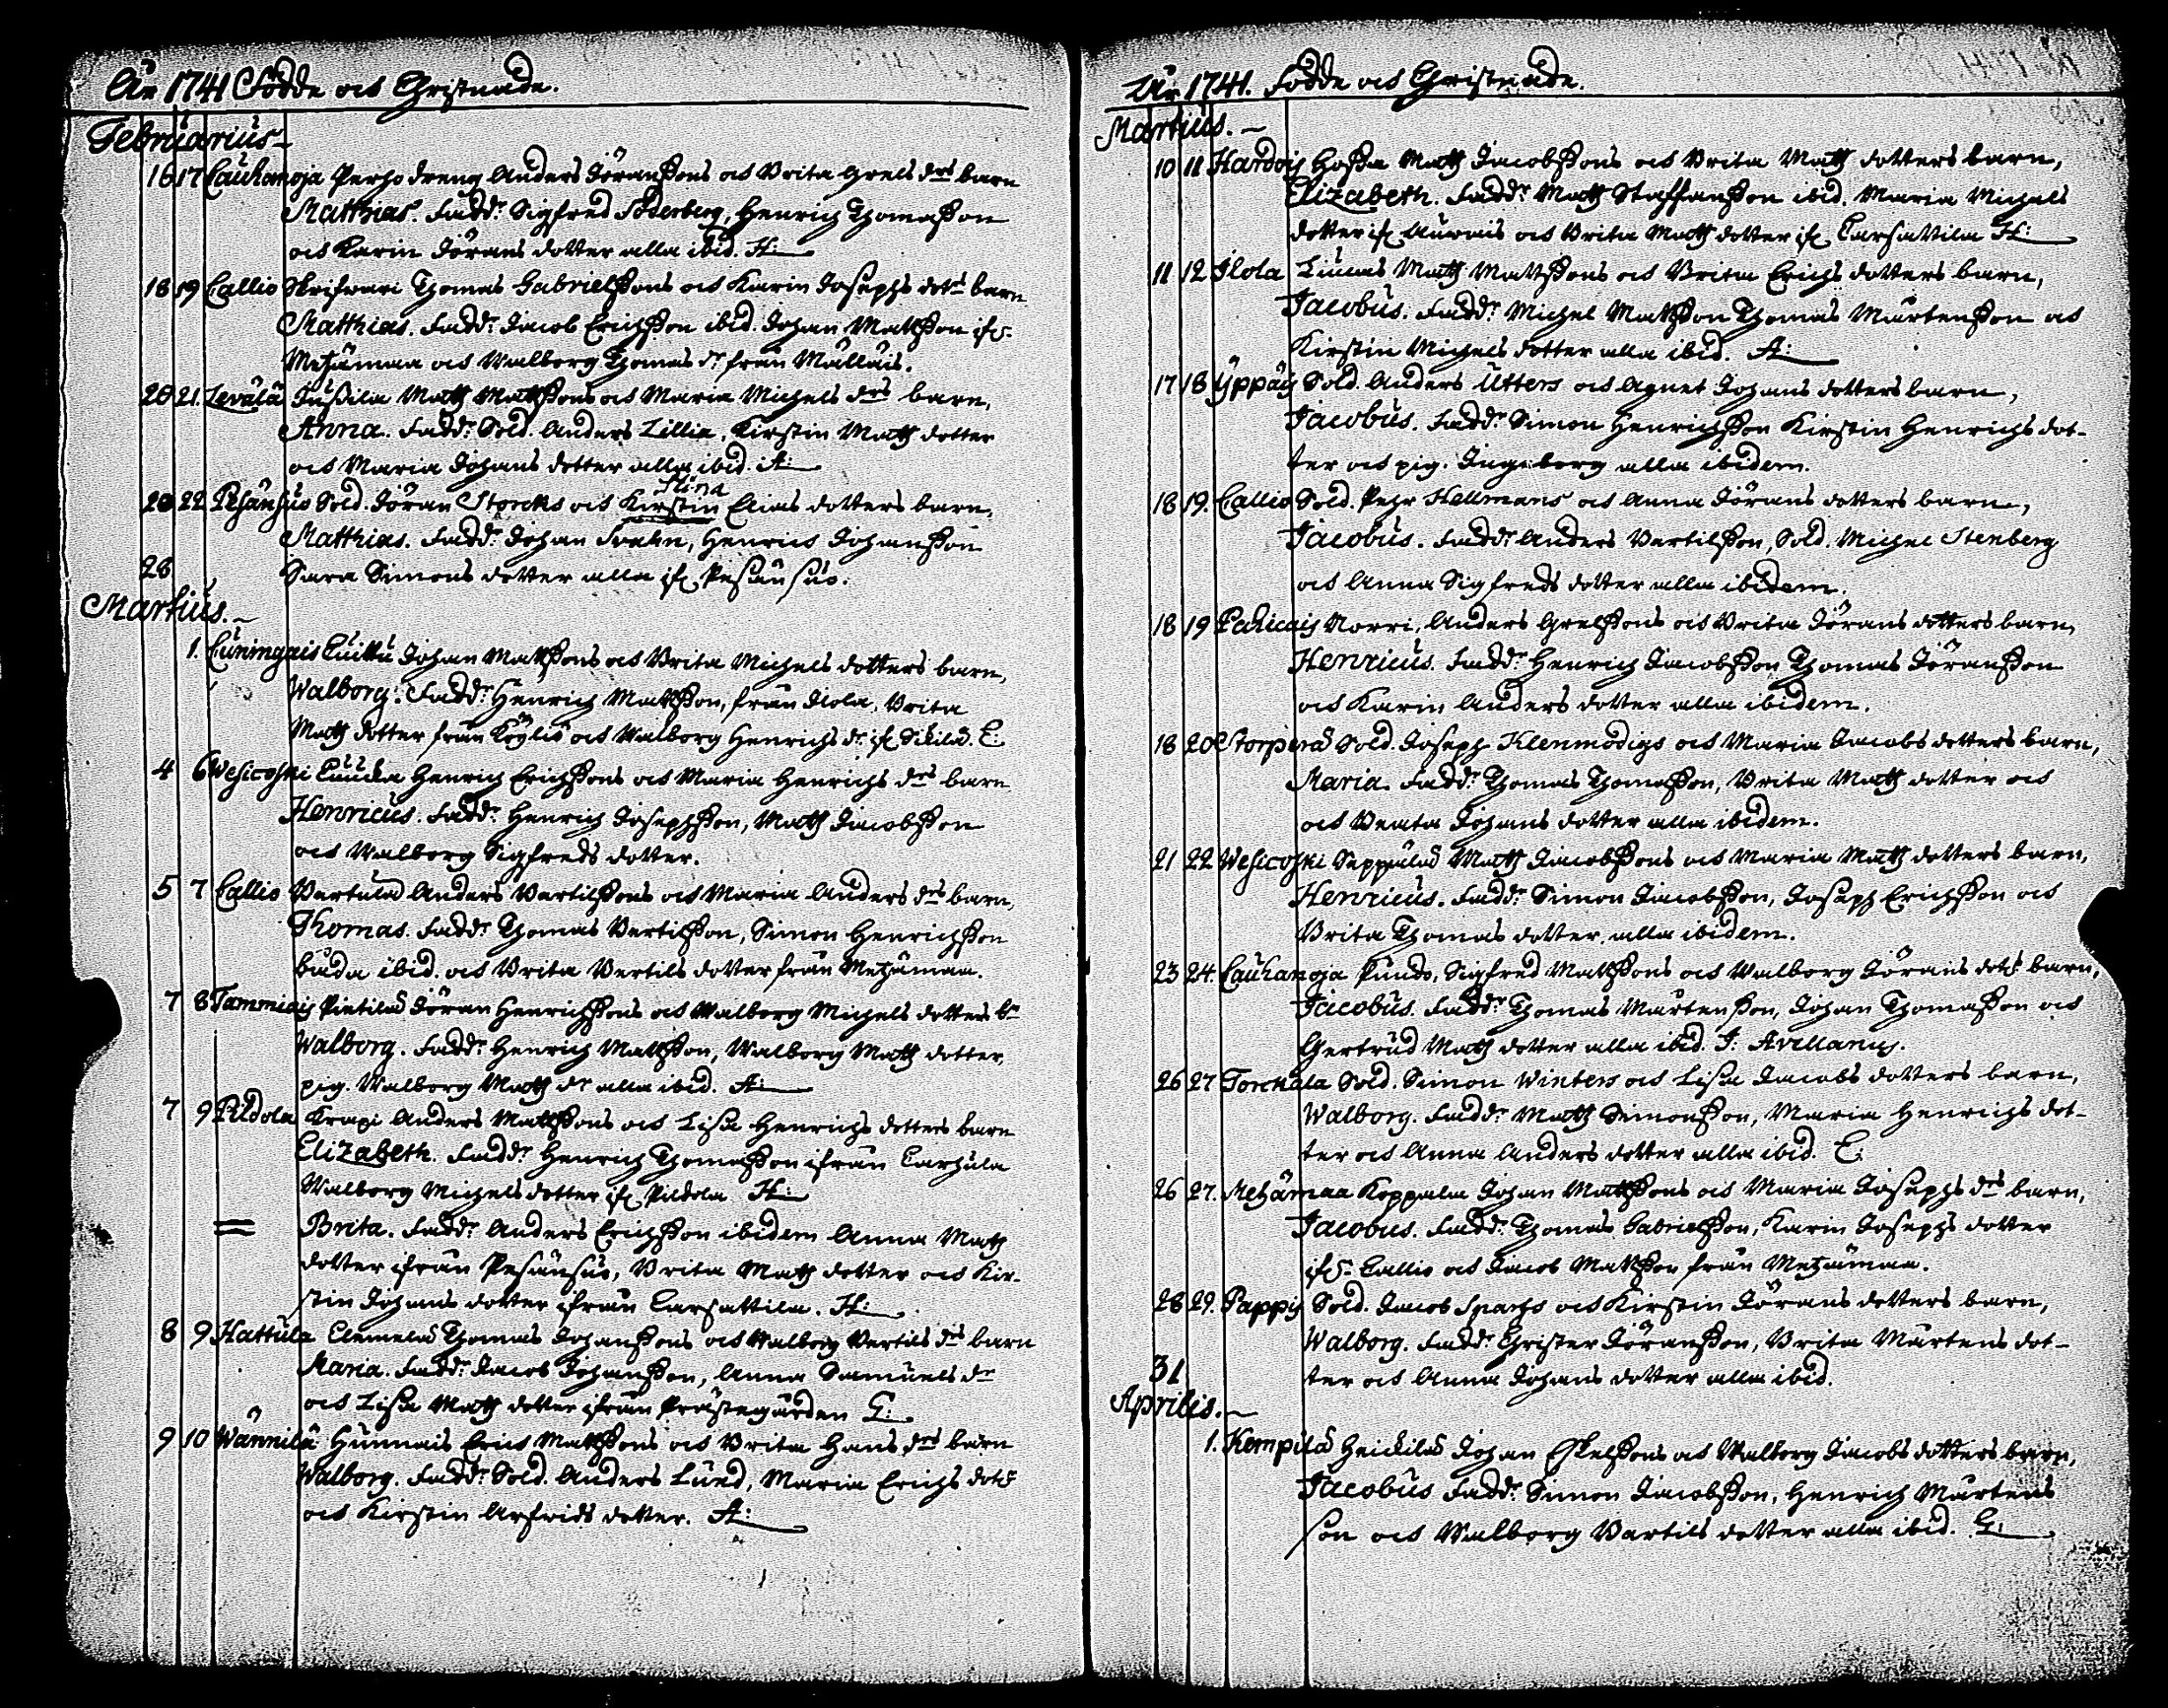 Åhr 1741 Födde och Christnade.
Februarius
16 17 Lauhanoja Perho dreng Anders Jöranssons och Brita Grels drs barn
Matthias. Fadd.r Sigfred Söderberg, Henrich Thomasson
och Karin Jörans dotter alla ibid. H:
18 19 Callio Skrifvari Thomas Gabrielssons och Karin Josephs dotrs barn
Matthias. Fadd.r Jacob Erichsson ibid. Johan Mattsson ifr.
Metzämaa och Walborg Thomas dr från Mällais.
20 21. Levälä Jussila Matth Mattssons och Maria Michels drs barn,
Anna. Fadd.r Sold. Anders Lillia, Kirstin Matth dotter
och Maria Johans dotter alla ibid. A:
Stina
20 22 Pesänsuo Sold. Jöran Storcks och Kirstin Elias dotters barn,
Matthias. Fadd.r Johan Svahn, Henric Johansson
28 Sara Simons dotter alla ifr Pesänsuo.
Martius.
1. Cuningais Cuitti Johan Mattssons och Brita Michels dotters barn,
Walborg. Fadd.r Henrich Mattsson, från Ilola, Brita
Matth dotter från Köyliö och Walborg Henrichs dr ifr Sikilä. C:
4 6 Wesicoski Cuucka Henrich Erichssons och Maria Henrichs drs barn
Henricus. Fadd.r Henrich Josephsson, Matth Jacobsson
och Walborg Sigfreds dotter.
5 7 Callio Bertula Anders Bertilssons och Maria Anders drs barn,
Thomas. Fadd.r Thomas Bertilsson, Simon Henrichsson
båda ibid. och Brita Bertils dotter från Metzämaa.
7 8 Tammiais Pietilä Jöran Henrichssons och Walborg Michels dotters bn
Walborg. Fadd.r Henrich Mattsson, Walborg Matth dotter,
pig. Walborg Matth dr alla ibid. A:
7 9 Pildola Krapi Anders Mattssons och Lisa Henrichs dotters barn
Elizabeth. Fadd.r Henrich Thomasson ifrån Carhula
Walborg Michels dotter ifr Pildola H:
= Brita. Fadd.r Anders Erichsson ibidem Anna Matth
dotter ifrån Pesänsuo, Brita Matth dotter och Kir-
stin Johans dotter ifrån Carsattila. H:
8 9 Hattula Clemelä Thomas Johanssons och Walborg Bertils drs barn
Maria. Fadd.r Jacob Johansson, Anna Samuels dr
och Lisa Matth dotter ifrån Prästegården G:
9 10 Wännilä Hunnais Eric Mattssons och Brita Hans drs barn
Walborg. Fadd.r Sold. Anders Lund, Maria Erichs dotr
och Kirstin Arfvids dotter. A:
Åhr 1741. Födde och Christnade.
Martius.
10 11 Hardois Hossa Matth Jacobssons och Brita Matth dotters barn,
Elizabeth. Fadd.r Matth Staffansson ibid. Maria Michels
dotter ifr Aurais och Brita Matth dotter ifr Carsattila H:
11 12 Ilola Liuias Matth Mattssons och Brita Erichs dotters barn,
Jacobus. Fadd.r Michel Mattsson Thomas Mårtensson och
Kirstin Michels dotter alla ibid. A:
17 18 Yppäis Sold. Anders Utters och Agnet Johans dotters barn,
Jacobus. Fadd.r Simon Henrichsson Kirstin Henrichs dot-
ter och pig. Ingeborg alla ibidem.
18 19. Callio Sold. Pehr Hellmans och Anna Jörans dotters barn,
Jacobus. Fadd.r Anders Bertilsson, Sold. Michel Stenberg
och Anna Sigfreds dotter alla ibidem.
18 19 Pahicais Norri, Anders Grelssons och Brita Jörans dotters barn,
Henricus. Fadd.r Henrich Jacobsson Thomas Jöransson
och Karin Anders dotter alla ibidem.
18 20 Storperä Sold. Joseph Klenmodigs och Maria Jacobs dotters barn,
Maria. Fadd.r Thomas Thomasson, Brita Matth dotter och
och Beata Johans dotter alla ibidem.
21 22 Wesicoski Seppälä Matth Jacobssons och Maria Matth dotters barn,
Henricus. Fadd.r Simon Jacobsson, Joseph Erichsson och
Brita Thomas dotter alla ibidem.
23 24. Lauhanoja Puudo, Sigfred Mattssons och Walborg Jörans dotrs barn,
Jacobus. Fadd.r Thomas Mårtensson, Johan Thomasson och
Gertrud Matth dotter alla ibid. J: Avellanus.
26 27 Torckala Sold. Simon Winters och Lisa Jacobs dotters barn,
Walborg. Fadd.r Matth Simonsson, Maria Henrichs dot-
ter och Anna Anders dotter alla ibid. C:
26 27. Metzämaa Koppala Johan Mattssons och Maria Josephs drs barn,
Jacobus. Fadd.r Thomas Gabrielsson, Karin Josephs dotter
ifr. Callio och Jacob Mattsson från Metzämaa.
28 29. Pappis Sold. Jacob Spachs och Kirstin Jörans dotters barn,
Walborg. Fadd.r Christer Jöransson, Brita Mårtens dot-
31 ter och Anna Johans dotter alla ibid.
Aprilis.
1. Kempilä Heickilä Johan Eskelssons och Walborg Jacobs dotters barn,
Jacobus Fadd.r Simon Jacobsson, Henrich Mårtens
son och Walborg Bertils dotter alla ibid. G: